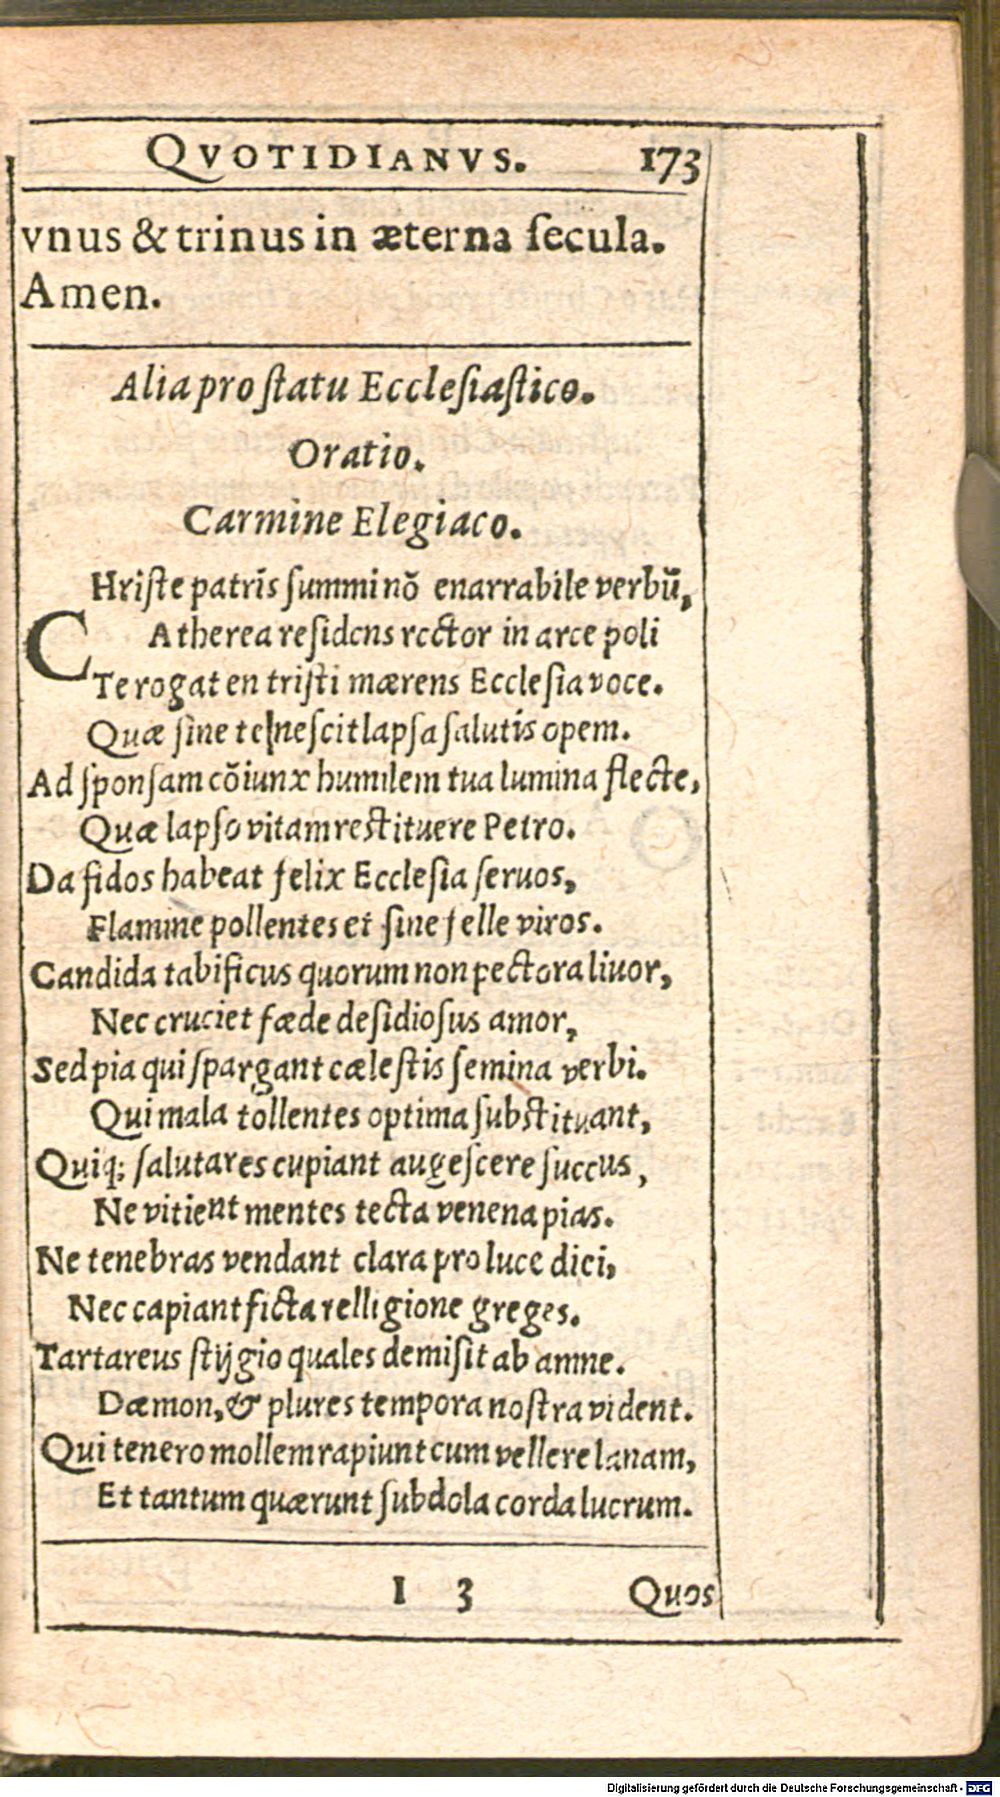 QVOTIDIANVS. 173
vnus & trinus in æterna ſecula.
Amen.
Alia pro ſtatu Eccleſiaſtico.
Oratio.
Carmine Elegiaco.
CHriſte patris ſummi nō enarrabile verbū,
Atherea reſidens rector in arce poli
Te rogat en triſti mærens Eccleſia voce.
Quæ ſine te neſcit lapſa ſalutis opem.
Ad ſponſam cōiunx humilem tua lumina flecte,
Quæ lapſo vitam reſtituere Petro.
Da fidos habeat felix Eccleſia ſeruos,
Flamine pollentes et ſine felle viros.
Candida tabificus quorum non pectora liuor,
Nec cruciet fæde deſidioſus amor,
Sed pia qui ſpargant cæleſtis ſemina verbi.
Qui mala tollentes optima ſubſtituant,
Quiq; ſalutares cupiant augeſcere ſuccus,
Ne vitient mentes tecta venena pias.
Ne tenebras vendant clara pro luce diei,
Nec capiant ficta relligione greges.
Tartareus ſtijgio quales demiſit ab amne.
Dæmon, & plures tempora noſtra vident.
Qui tenero mollem rapiunt cum vellere lanam,
Et tantum quærunt ſubdola corda lucrum.
I 3 Quos
Digitalisierung gefördert durch die Deutsche Forschungsgemeinschaft - DFG